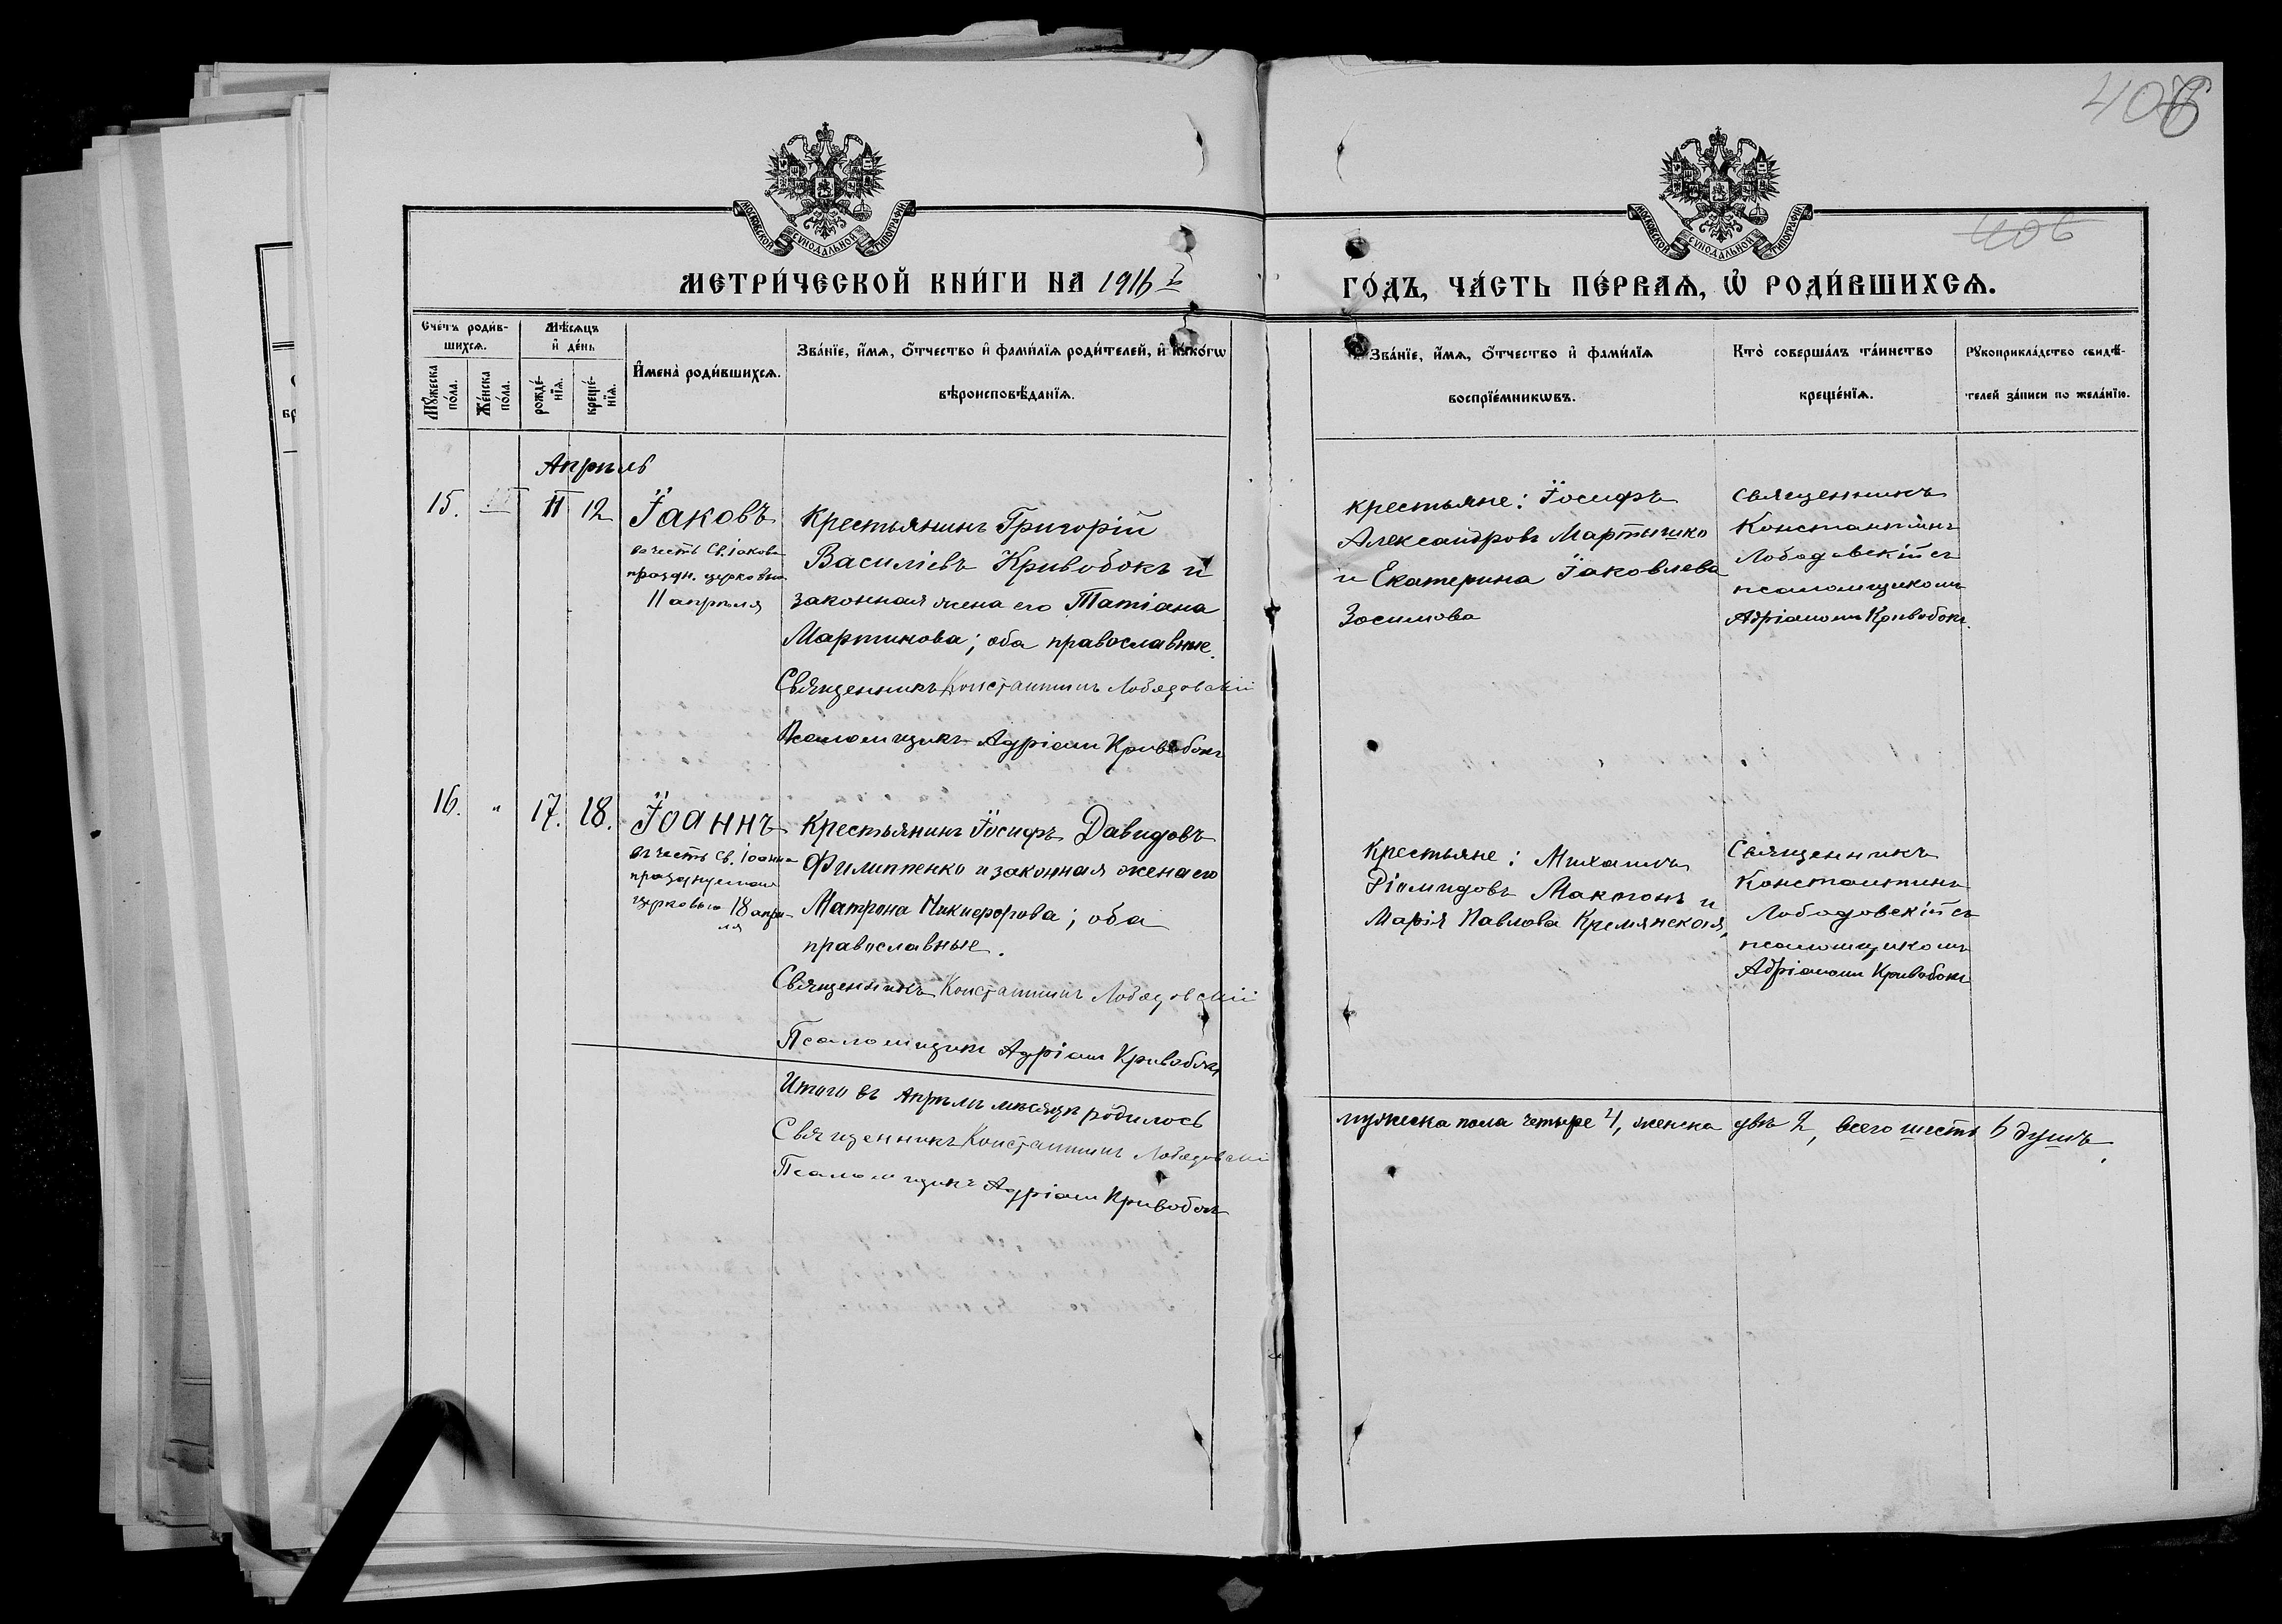 408
406
МОСКОВСКОЙ СѴНОДАЛЬНОЙ ТИПОГРАФІИ
МОСКОВСКОЙ СѴНОДАЛЬНОЙ ТИПОГРАФІИ
МЕТРИ́ЧЕСКОЙ КНИ́ГИ НА 1916 ГО́ДЪ, ЧА́СТЬ ПЕ́РВАѦ, Ѡ҆ РОДИ́ВШИХСѦ.
Сче́тъ роди́в-
шихсѧ.
Мѣ́сѧцъ
и҆ де́нь
Мꙋ́жеска
по́ла.
Же́нска
по́ла.
рожде́-
нїѧ.
креще́-
нїѧ.
И҆мена̀ роди́вшихсѧ.
Зва́нїе, и҆́мѧ, ѻ҆́тчество и҆ фами́лїѧ роди́телей, и҆ како́гѡ
вѣроисповѣ́данїѧ.
Зва́нїе, и҆́мѧ, ѻ҆́тчество и҆ фами́лїѧ
воспрїе́мникѡвъ.
Кто̀ соверша́лъ та́инство
креще́нїѧ.
Рꙋкоприкла́дство свидѣ́-
телей за́писи по жела́нїю.
Апрѣль
15.
11
12
Іаковъ
въ честь Св. Іакова
праздн. церковью
11 апрѣля
Крестьянинъ Григорій
Василіевъ Кривобокъ и
законная жена его Татіана
Мартинова; оба православные.
Священникъ Константинъ Лободовскій
Псаломщикъ Адріанъ Кривобокъ
крестьяне: Іосифъ
Александровъ Мартышко
и Екатерина Іаковлева
Зосимова
Священникъ
Константинъ
Лободовскій съ
псаломщикомъ
Адріаномъ Кривобокъ.
16.
"
17.
18.
Іоаннъ
въ честь Св. Іоанна
празднуемаго
церковью 18 апрѣ-
ля
Крестьянинъ Іосифъ Давидовъ
Филиппенко и законная жена его
Матрона Никифорова; оба
православные.
Священникъ Константинъ Лободовскій
Псаломщикъ Адріанъ Кривобокъ
Крестьяне: Михаилъ
Діомидовъ и
Марія Павлова Кремянская,
Священникъ
Константинъ
Лободовскій съ
псаломщикомъ
Адріаномъ Кривобокъ
Итого въ Апрѣлѣ мѣсяцѣ родилось мужеска пола четыре 4, женска двѣ 2, всего шесть 6 душъ.
Священникъ Константинъ Лободовскій
Псаломщикъ Адріанъ Кривобокъ